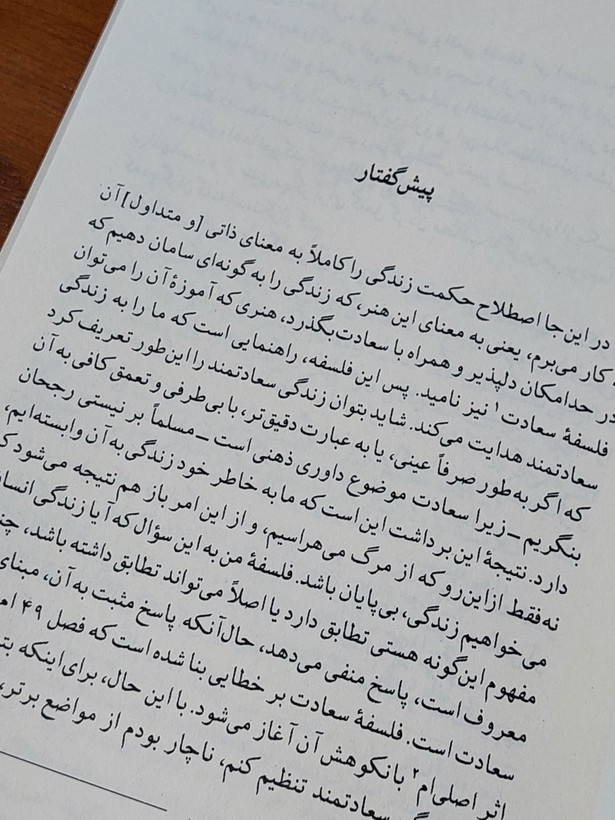 پیش‌گفتار
در این‌جا اصطلاح حکمت زندگی را کاملاً به معنای ذاتی [و متداول] آن
کار می‌برم، یعنی به معنای این هنر، که زندگی را به گونه‌ای سامان دهیم که
در حد امکان دلپذیر و همراه با سعادت بگذرد، هنری که آموزهٔ آن را می‌توان
فلسفهٔ سعادت۱ نیز نامید. پس این فلسفه، راهنمایی است که ما را به زندگی
سعادتمند هدایت می‌کند. شاید بتوان زندگی سعادتمند را این‌طور تعریف کرد
که اگر به‌طور صرفاً عینی، یا به عبارت دقیق‌تر، با بی‌طرفی و تعمق کافی به آن
بنگریم ــ زیرا سعادت موضوع داوری ذهنی است ــ مسلماً بر نیستی رجحان
دارد. نتیجهٔ این برداشت این است که ما به خاطر خود زندگی به آن وابسته‌ایم،
نه فقط ازاین‌رو که از مرگ می‌هراسیم، و از این امر باز هم نتیجه می‌شود که
می‌خواهیم زندگی، بی‌پایان باشد. فلسفهٔ من به این سؤال که آیا زندگی
مفهوم این‌گونه هستی تطابق دارد یا اصلاً می‌تواند تطابق داشته باشد،
معروف است، پاسخ منفی می‌دهد، حال‌آنکه پاسخ مثبت به آن، مبنای
سعادت است. فلسفهٔ سعادت بر خطایی بنا شده است که فصل ۴۹
اثر اصلی‌ام۲ با نکوهش آن آغاز می‌شود. با این حال، برای اینکه
سعادتمند تنظیم کنم، ناچار بودم از مواضع برتر،